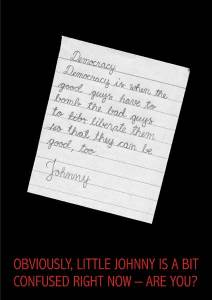 Democracy
Democracy is when the
good guys have to
bomb the bad guys
to liberate them
so that they can be
good, too
Johnny
OBVIOUSLY, LITTLE JOHNNY IS A BIT
CONFUSED RIGHT NOW – ARE YOU?